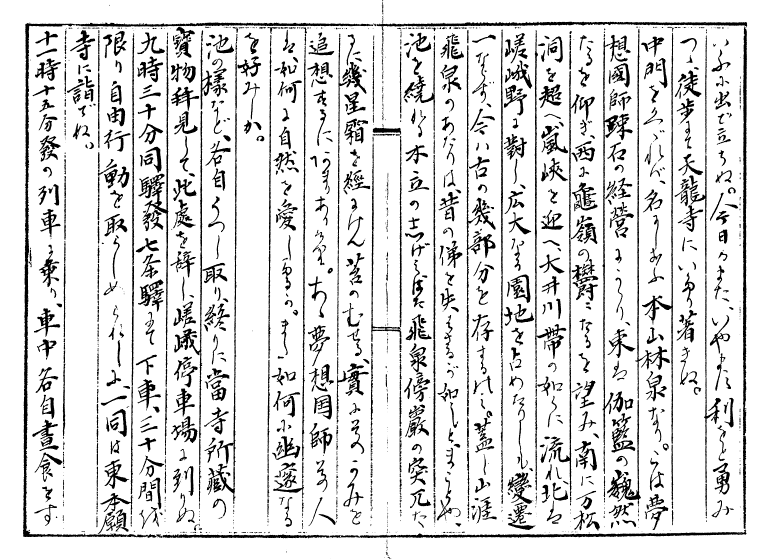 に出で立ちぬ。今日もまた、いやまた利と勇み
つゝ徒歩にて天龍寺にいたり著きぬ。
中門をくゞれば、名にしおふ本山林泉なり。こは夢
想國師疎石の経營にかゝり、東は伽藍の巍然
たるを仰ぎ、西に龜嶺の欝々たるを望み、南に万松
洞を超へ嵐峡を迎へ大井川帯の如くに流れ北は
嵯峨野に對し、広大なる園地を占めたりしも、變遷
一ならず、今は古の幾部分を存するのみ。蓋し山涯
飛泉のあたりは、昔の俤を失はざるが如しとぞ
池を繞れる木立のしげみ飛泉傍巌の突兀た
る幾星霜を經にけん苔のむせる、實にそのかみを
追想するにあまりあり。あゝ夢想国師その人
は如何に自然を愛しけるか。また如何に幽邃なる
を好みしか。
池の様など、各自うつし取り、終りに當寺所蔵の
寶物拜見して、此處を辞し、嵯峨停車場に到りぬ
九時三十分同驛發七条驛にて下車、三十分間を
限り自由行動を取らしめられしに、一同は東本願
寺に詣でぬ。
十一時十五分發の列車に乗り、車中各自晝食をす